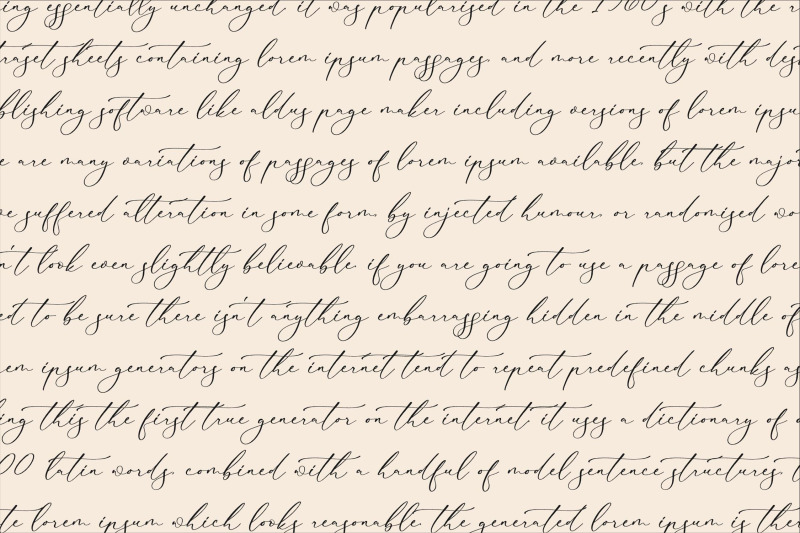 ing essentially unchanged it was popularised in the 1960's with the r
traset sheets containing lorem ipsum passages, and more recently with des
blishing software like aldus page maker including versions of lorem ipsu
e are many variations of passages of lorem ipsum available, but the major
ve suffered alteration in some form, by injected humour, or randomised wo
n't look even slightly believable. if you are going to use a passage of lore
ed to be sure there isn't anything embarrassing hidden in the middle of
em ipsum generators on the internet tend to repeat predefined chunks as
ing this the first true generator on the internet. it uses a dictionary of
00 latin words, combined with a handful of model sentence structures, t
te lorem ipsum which looks reasonable. the generated lorem ipsum is ther